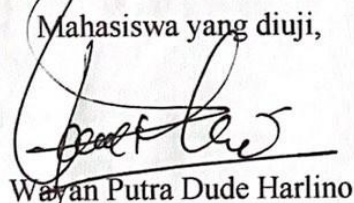 Mahasiswa yang diuji,
Wayan Putra Dude Harlino